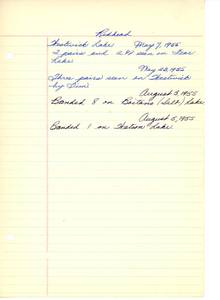 Redhead
Westwick Lake May 7, 1955
2 pairs and 2 seen on
Lake
May 20, 1955
Three pairs seen on Westwick
by
August 3, 1955
Banded 8 on Boitano Lake
August 5, 1955
Banded 1 on Watson Lake